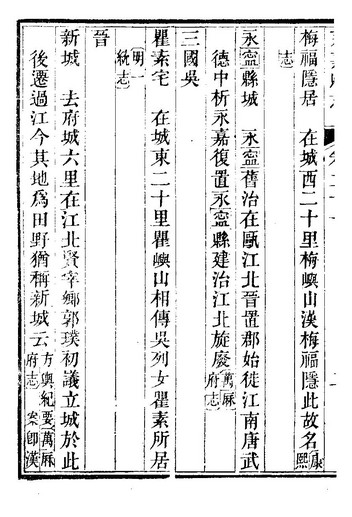 梅福隱居　在城西二十里梅嶼山漢梅福隱此故名康熙
志
永寧縣城　永寧舊治在甌江北晉置郡始徙江南唐武
德中析永嘉復置永寧縣建治江北旋廢萬厤府志
三國吳
瞿素宅　在城東二十里瞿嶼山相傳吳列女瞿素所居
明一統志
晉
新城　去府城六里在江北賢宰鄉郭璞初議立城於此
後遷過江今其地爲田野猶稱新城云方輿紀要萬厤府志　案卽漢